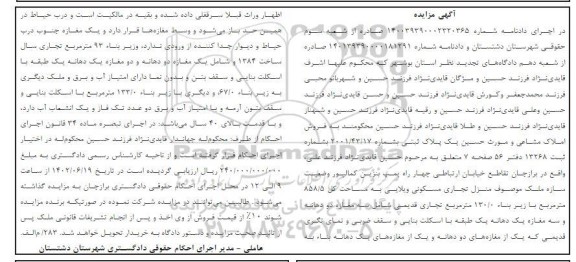 آگهی مزایده
در اجرای دادنامه شماره ۱۴۰۰۳۹۳۹۰۰۰۲۳۲۰۳۶۵ صادره از شعبه سوم
حقوقی شهرستان دشتستان و دادنامه شماره ۱۴۰۱۳۹۳۹۰۰۰۰۱۸۱۲۹۱ صادره
از شعبه دهم دادگاه‌های تجدید نظر استان بوشهر که محکوم علیها اشرف
قایدی‌نژاد فرزند حسین و مژگان قایدی‌نژاد فرزند حسین و شهربانو محبی
فرزند محمدجعفر و کورش قایدی‌نژاد فرزند حسین و حسن فرزند
حسین و علی قایدی‌نژاد فرزند حسین و رقیه قایدی‌نژاد فرزند حسین و شهناز
قایدی‌نژاد فرزند حسین و طلا قایدی‌نژاد فرزند حسین محکومند به فروش
املاک مشاعی و موروث حسین یک پلاک ثبتی شماره ۲۰۰۱/۴۳/۱۷ شماره
ثبت ۱۳۳۶۸ دفتر ۵۶ صفحه ۷ متعلق به مرحوم حسین قایدی‌نژاد فرزند علی
واقع در برازجان تقاطع خیابان ارتباطی چهار راه پمپ بنزین کمالپور وضعیت
سازه ملک موصوف منزل تجاری مسکونی ویلایی به مساحت کل ۸۵۸/۵
مترمربع با زیر بنای ۱۳۰/۰ مترمربع تجاری قدیمی شامل دو مغازه دو دهانه
و سه مغازه یک دهانه یک طبقه با اسکلت بنایی و سقف ضربی و نمای آجری
قدیمی که یک از مغازه‌های دو دهانه و یک از مغازه‌های یک دهانه بنا به
اظهار وراث قبلا سرقفلی داده شده و بقیه در مالکیت است و درب حیاط در
همین حد باز می‌شود و وسط مغازه‌ها قرار دارد و یک مغازه جنوب درب
حیاط و دیوار جدا کننده از ورودی ندارد، وزیر بنای ۹۳ مترمربع تجاری سال
ساخت ۱۳۸۴ و شامل یک مغازه دو دهانه و دو مغازه یک دهانه یک طبقه با
اسکلت بنایی و سقف بتن و بدون نما دارای امتیاز آب و برق و ملک دیگری
به زیر بنای ۶۷/۰ و دیگری با زیر بنای ۱۳۳/۰ مترمربع با اسکلت بنایی و
سقف بتون آرمه و با امتیاز آب و برق دو عدد تک فاز و یک انشعاب آب دارد،
و با قدمت بالای ۴۰ سال می‌باشد؛ در اجرای تبصره ماده ۳۴ قانون اجرای
احکام از طرف محکوم‌له جهاندار قایدی‌نژاد فرزند حسین محکوم‌له در اختیار
اجرای احکام قرار گرفته است و از ناحیه کارشناس رسمی دادگستری به مبلغ
۲۴۰/۰۰۰/۰۰۰/۰۰۰ ریال ارزیابی گردیده است در تاریخ ۱۴۰۳/۰۶/۱۹ از ساعت
۹ الی ۱۲ در محل اجرای احکام حقوقی دادگستری برازجان به مزایده گذاشته
می‌شود. طالبین می‌توانند در مزایده شرکت نموده در صورتیکه برنده مزایده
شوند ۱۰٪ از قیمت فروش از وی اخذ و پس از انجام تشریفات قانونی ملک پس
از تائید صحت مزایده و دستور دادگاه به خریدار تحویل خواهد شد. ۲۸۳/م‌الف
عاملی - مدیر اجرای احکام حقوقی دادگستری شهرستان دشتستان
ParsNamadData
۰۲۱-۸۸۳۴۹۶۷۰-۵